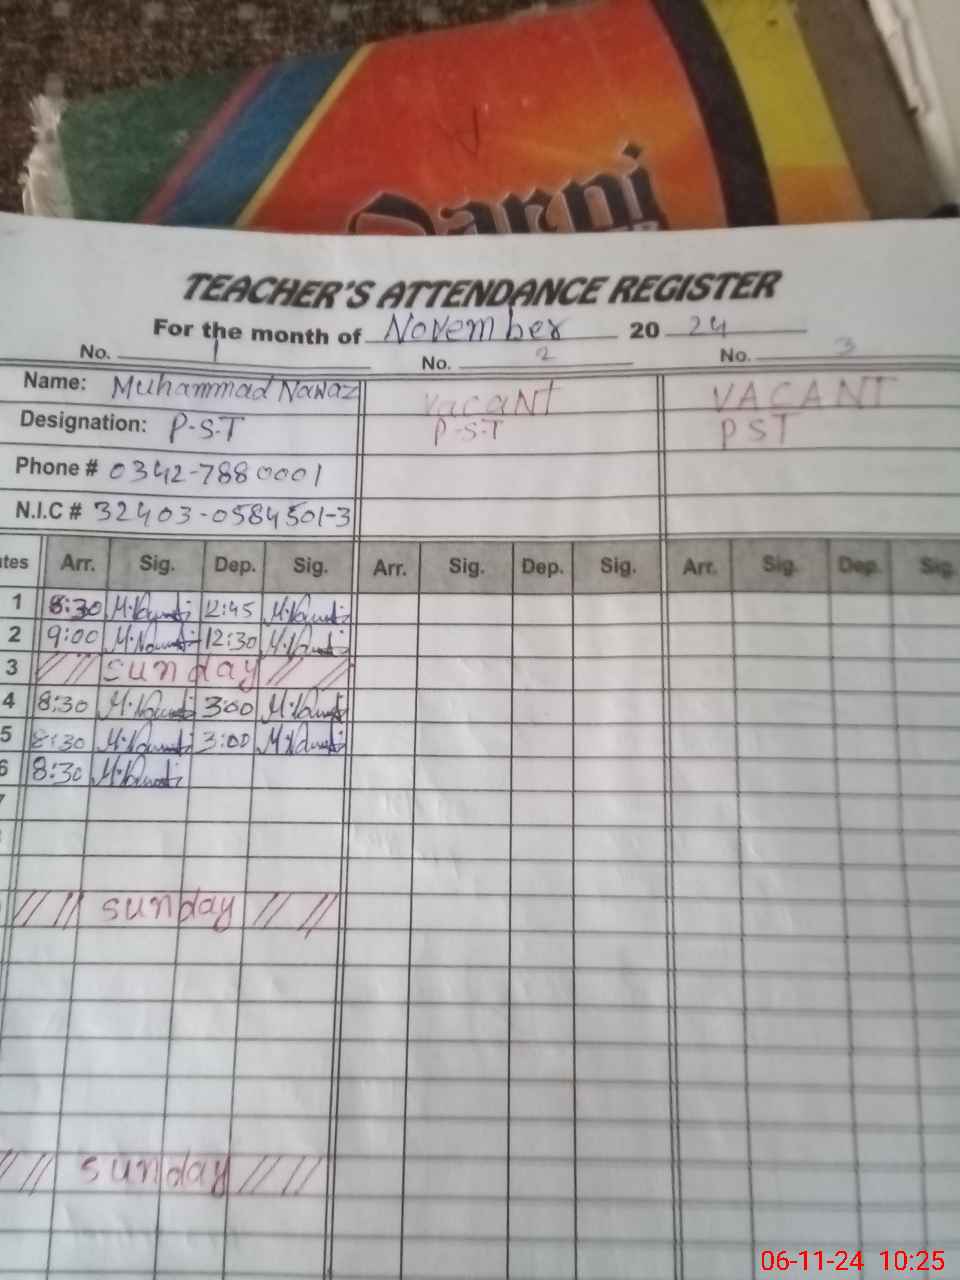 Darni
TEACHER'S ATTENDANCE REGISTER
For the month of November 20 24
No. 1 No. 2 No. 3
Name: Muhammad Nawaz vacaNT VACANT
Designation: P-S-T P-S-T PST
Phone # 0342-7880001
N.I.C # 32403-0584501-3
tes Arr. Sig. Dep. Sig. Arr. Sig. Dep. Sig. Arr. Sig. Dep. Sig.
1 8:30 12:45
2 9:00 12:30
3 sunday
4 8:30 3:00
5 8:30 3:00
6 8:30
sunday
sunday
06-11-24 10:25